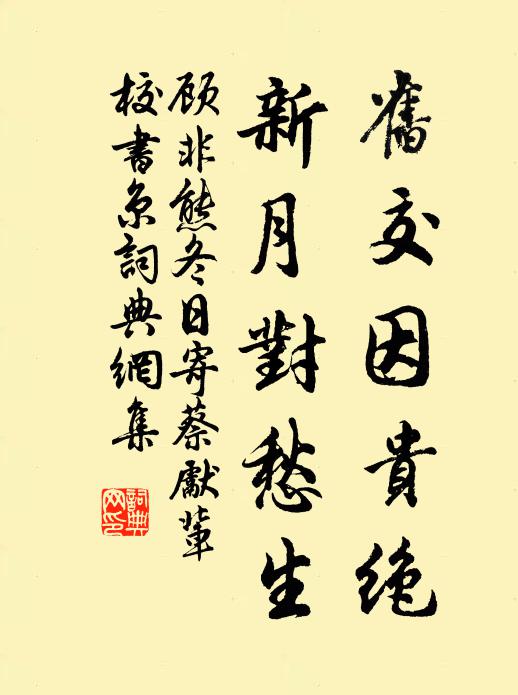 舊交因貴絶
新月對愁生
顾非熊冬日寄蔡獻輩
校書京詞典網集
詞典网印